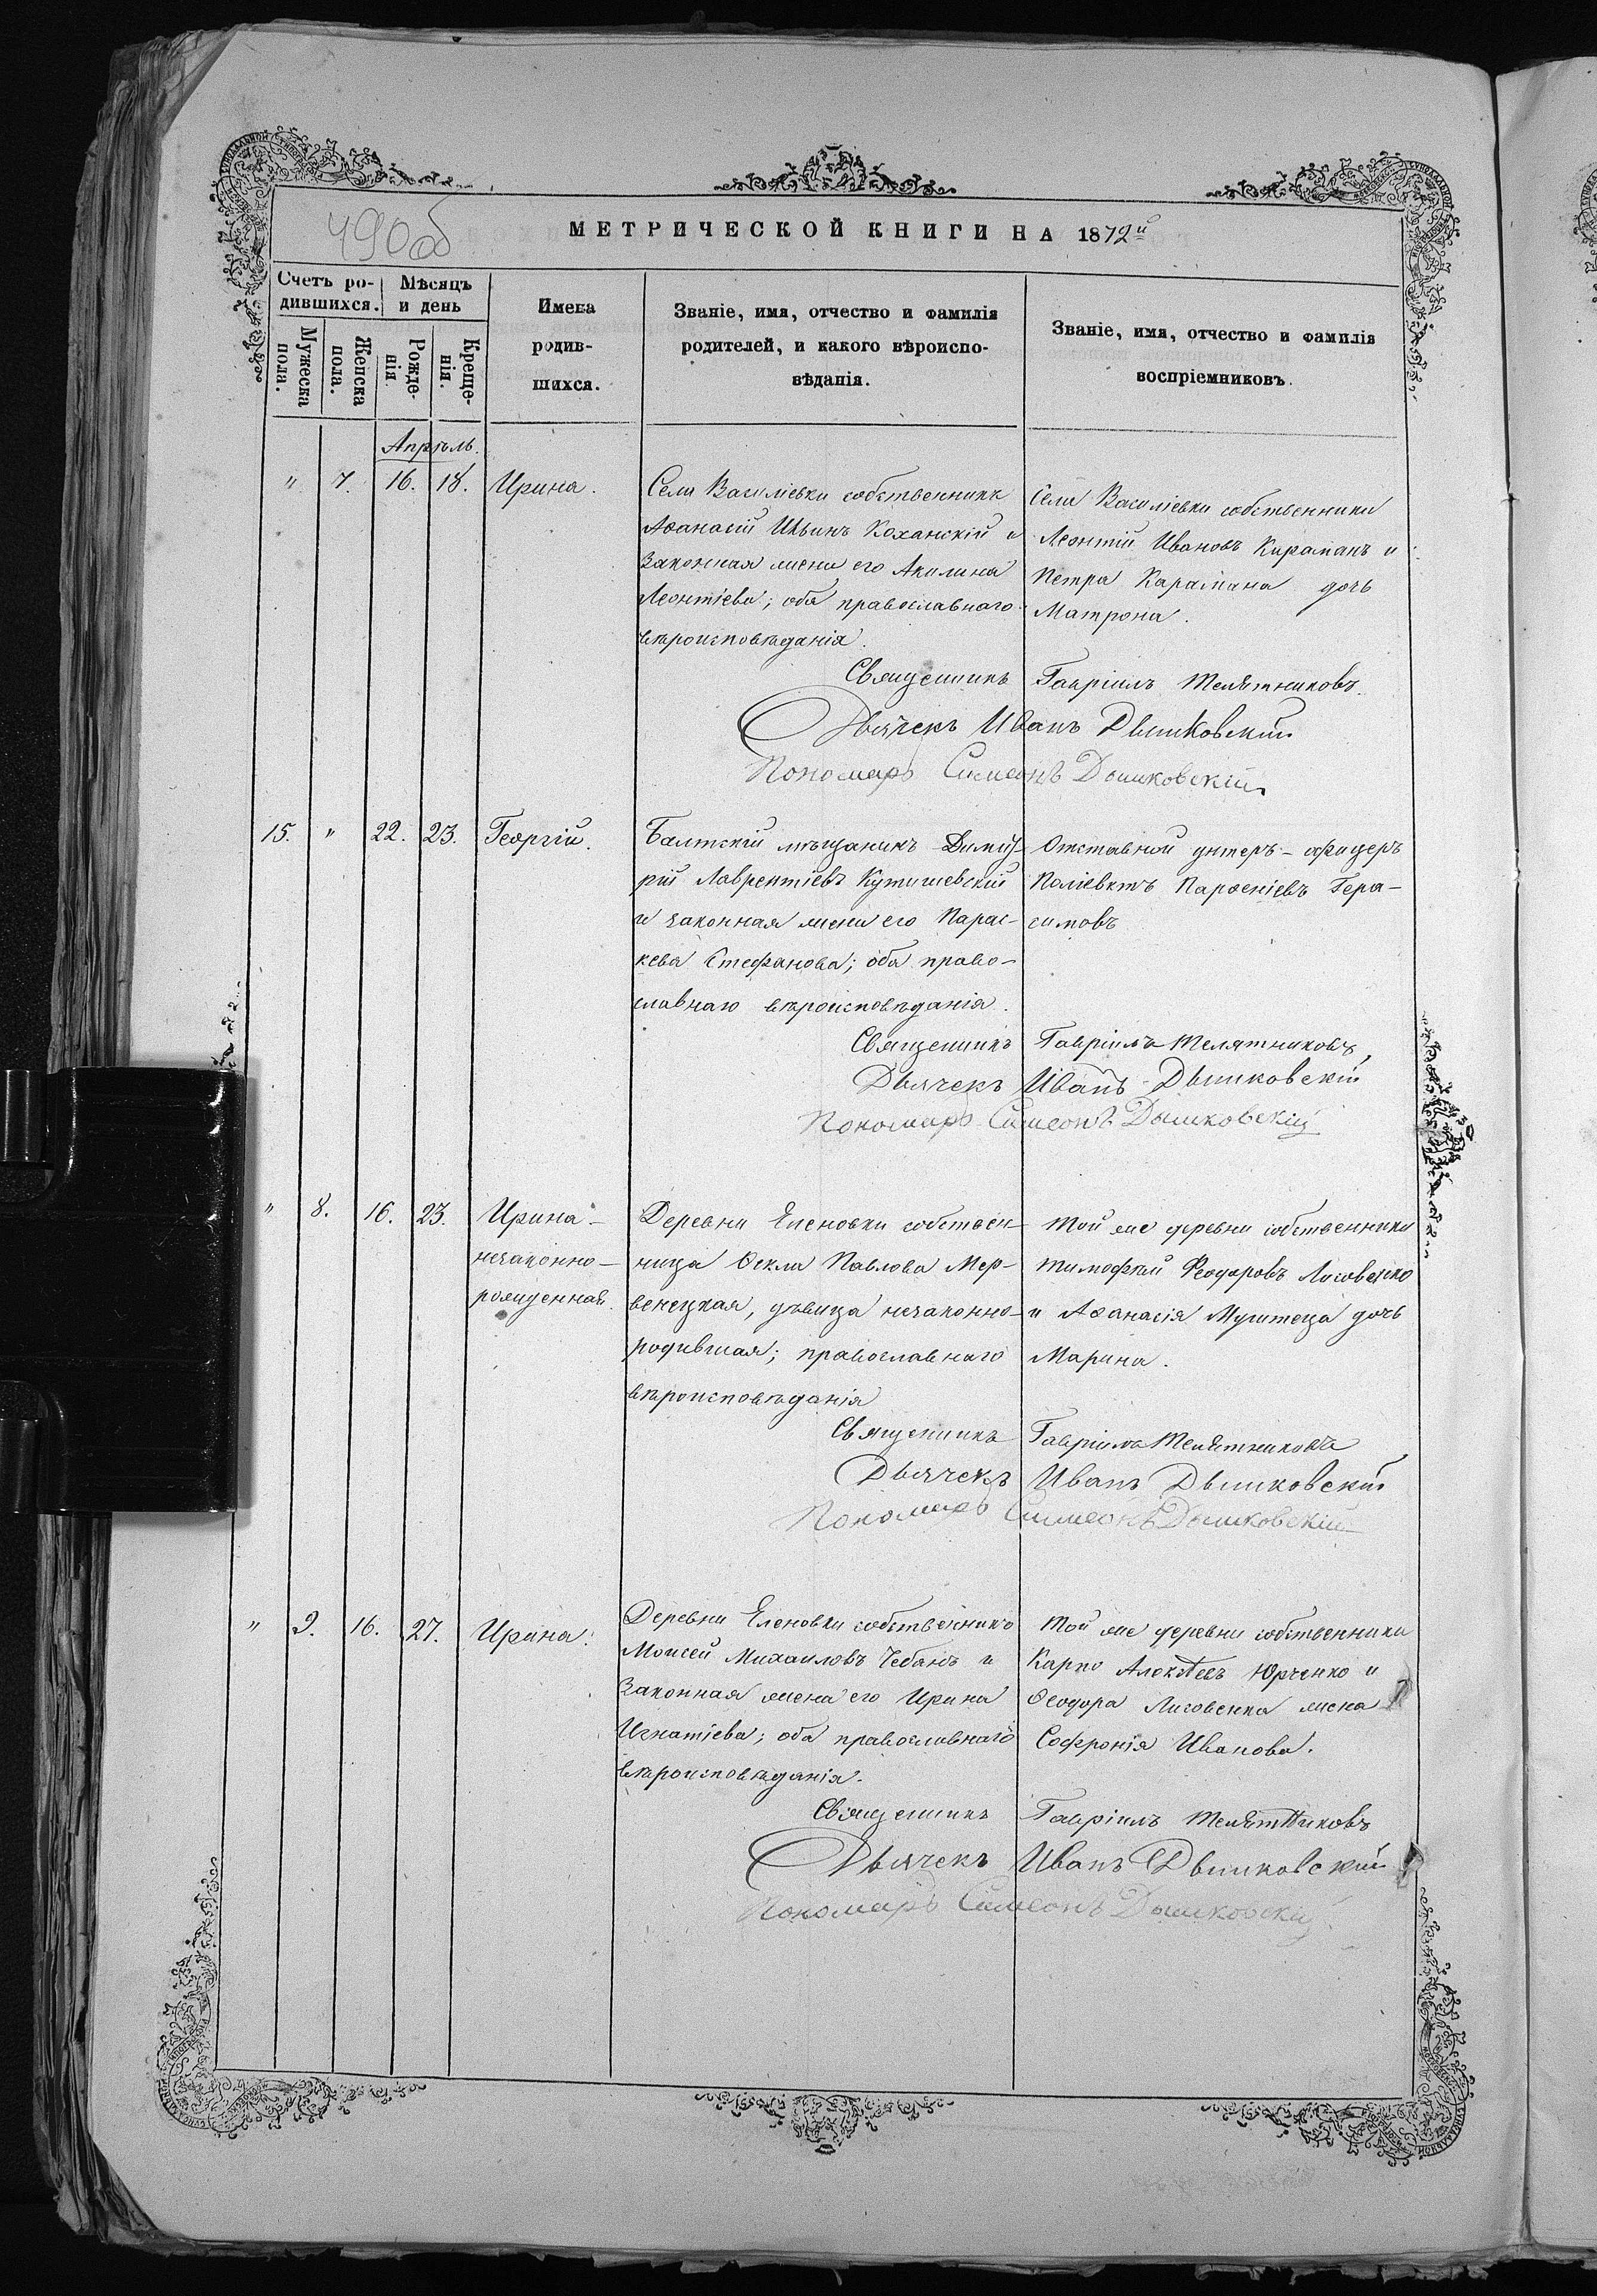 490об
МЕТРИЧЕСКОЙ КНИГИ НА 1872й
Счетъ ро-
дившихся.
Мѣсяцъ
и день
Мужеска
пола.
Женска
пола.
Рожде-
нія
Креще-
нія.
Имена
родив-
шихся.
Званіе, имя, отчество и фамилія
родителей, и какого вѣроиспо-
вѣданія.
Званіе, имя, отчество и фамилія
воспріемниковъ.
Апрѣль.
" 7. 16. 18. Ирина.
Села Василіевки собственникъ
Аѳанасій Ильинъ Коханскій и
законная жена его Акилина
Леонтіева; оба православнаго
вѣроисповѣданія.
Села Василіевки собственники
Леонтій Ивановъ Караманъ и
Петра Карамана дочь
Матрона.
Священникъ Гавріилъ Телятниковъ.
Дьячекъ Иванъ Дышковскій
Пономарь Симеонъ Дышковскій
15. " 22. 23. Георгій.
Балтскій мѣщанинъ Димит-
рій Лаврентіевъ Кутишевскій
и законная жена его Парас-
кева Стефанова; оба право-
славнаго вѣроисповѣданія.
Отставной унтеръ-офицеръ
Поліевктъ Парѳеніевъ Гера-
симовъ
Священникъ Гавріилъ Телятниковъ
Дьячекъ Иванъ Дышковскій
Пономарь Симеонъ Дышковскій
" 8. 16. 23. Ирина-
незаконно-
рожденная.
Деревни Еленовки собствен-
ница Ѳекла Павлова Мер-
венецкая, дѣвица незаконно-
родившая; православнаго
вѣроисповѣданія
Той же деревни собственники
Тимофей Феодоровъ Лисовенко
и Аѳанасія Мушteца дочь
Марина.
Священникъ Гавріилъ Телятниковъ
Дьячекъ Иванъ Дышковскій
Пономарь Симеонъ Дышковскій
" 9. 16. 27. Ирина.
Деревни Еленовки собственникъ
Моисей Михаиловъ Чебанъ и
законная жена его Ирина
Игнатіева; оба православнаго
вѣроисповѣданія.
Той же деревни собственники
Карпо Алексѣевъ Юрченко и
Ѳеодора Лисовенка жена
Софронія Иванова.
Священникъ Гавріилъ Телятниковъ
Дьячекъ Иванъ Дышковскій
Пономарь Симеонъ Дышковскій